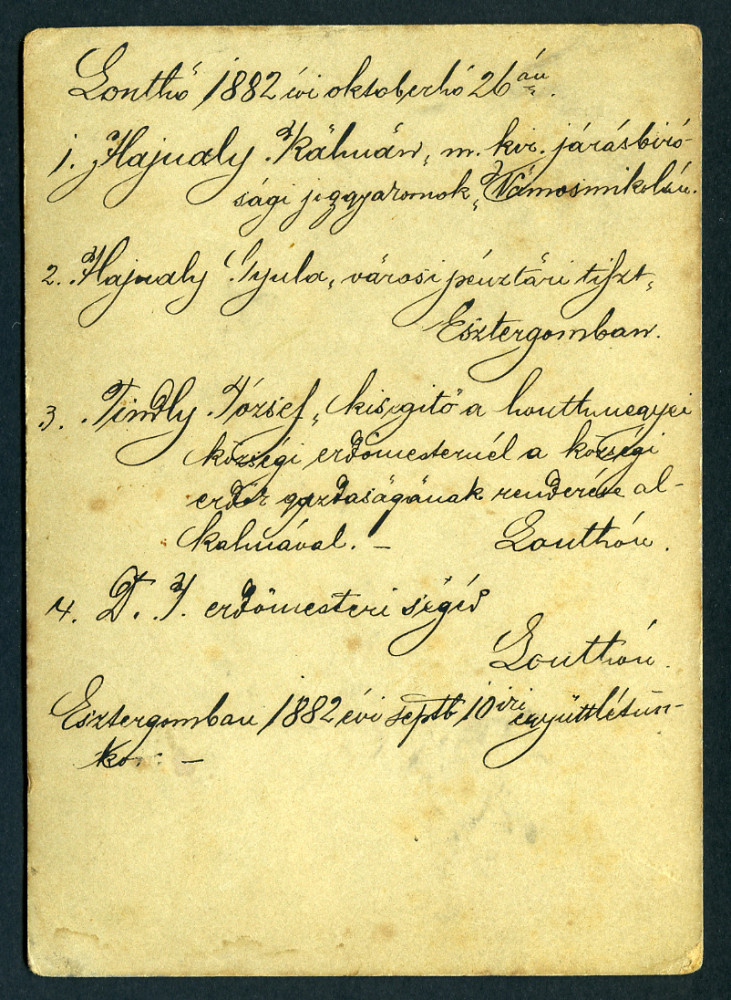 Lonthó 1882 évi oktoberhó 26 án.
1. Hajnaly Kálmán, m. kir. járásbiró-
sági joggyakornok, Vámosmikolán.
2. Hajnaly Gyula, városi pénztári tiszt,
Esztergomban.
3. Tindly József, kisegitő a honthmegyei
községi erdőmesternél a községi
erdők gazdaságának rendezése al-
kalmával. – Lonthón.
4. D. J. erdőmesteri segéd
Lonthón.
Esztergomban 1882 évi septb 10 iki együttlétün-
kor. –